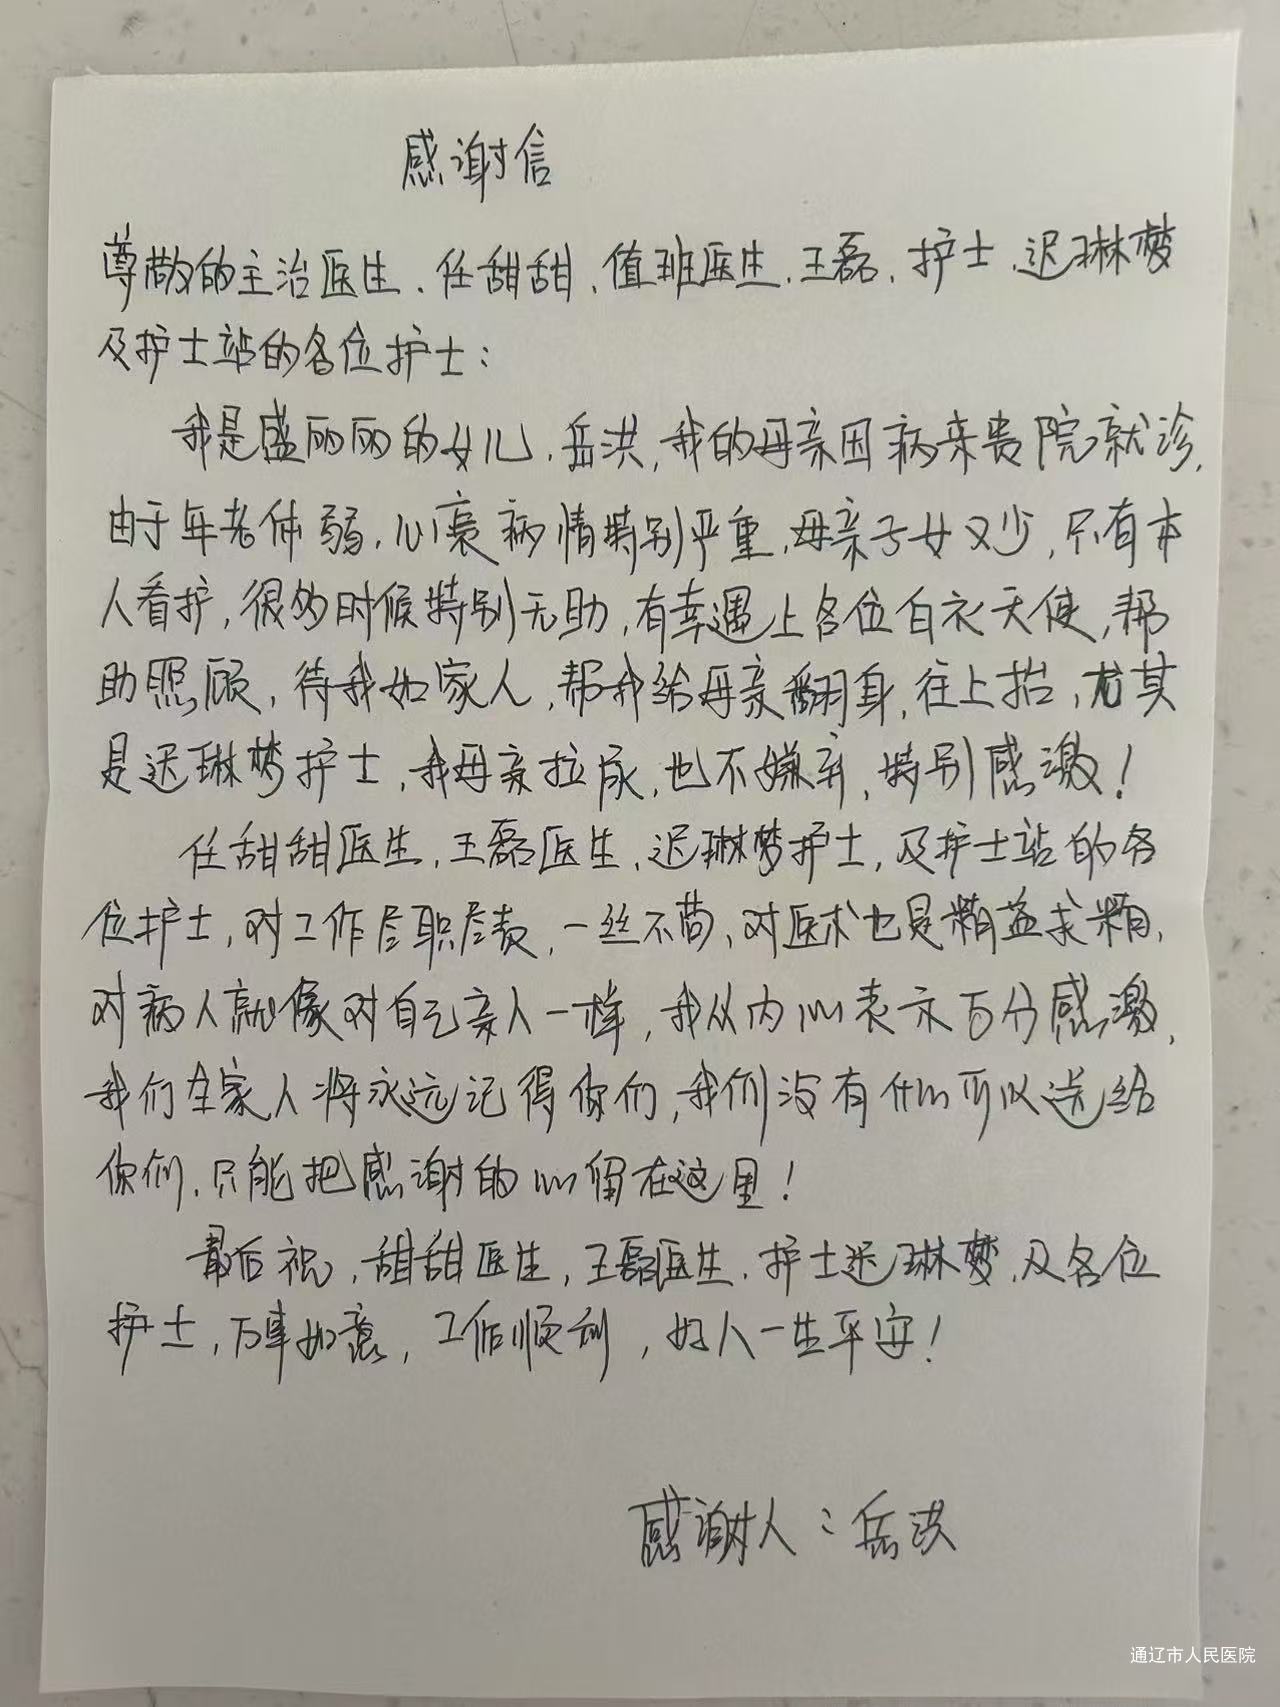 感谢信
尊敬的主治医生、任甜甜、值班医生、王磊、护士、迟琳梦
及护士站的各位护士：
我是盛丽丽的女儿、岳洪,我的母亲因病来贵院就诊,
由于年老体弱,心衰病情特别严重,母亲子女又少,只有本
人看护,很多时候特别无助,有幸遇上各位白衣天使,帮
助照顾,待我如家人,帮我给母亲翻身,往上抬,尤其
是迟琳梦护士,我母亲拉尿,也不嫌弃,特别感激！
任甜甜医生,王磊医生,迟琳梦护士,及护士站的各
位护士,对工作尽职尽责,一丝不苟、对医术也是精益求精,
对病人就像对自己亲人一样,我从内心表示万分感激,
我们全家人将永远记得你们,我们没有什么可以送给
你们,只能把感谢的心留在这里！
最后祝,甜甜医生,王磊医生,护士迟琳梦,及各位
护士,万事如意,工作顺利,好人一生平安！
感谢人：岳洪
通辽市人民医院